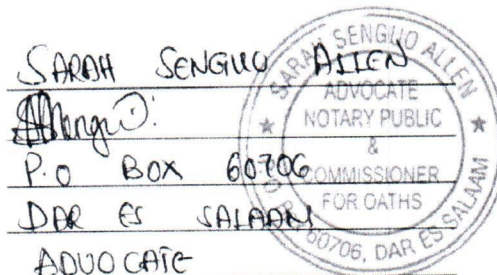 SARAH SENGIIO ALLEN
P.O BOX 60706
DAR ES SALAAM
ADVOCATE
SARAH SENGIIO ALLEN
ADVOCATE
NOTARY PUBLIC
&
COMMISSIONER
FOR OATHS
60706, DAR ES SALAAM